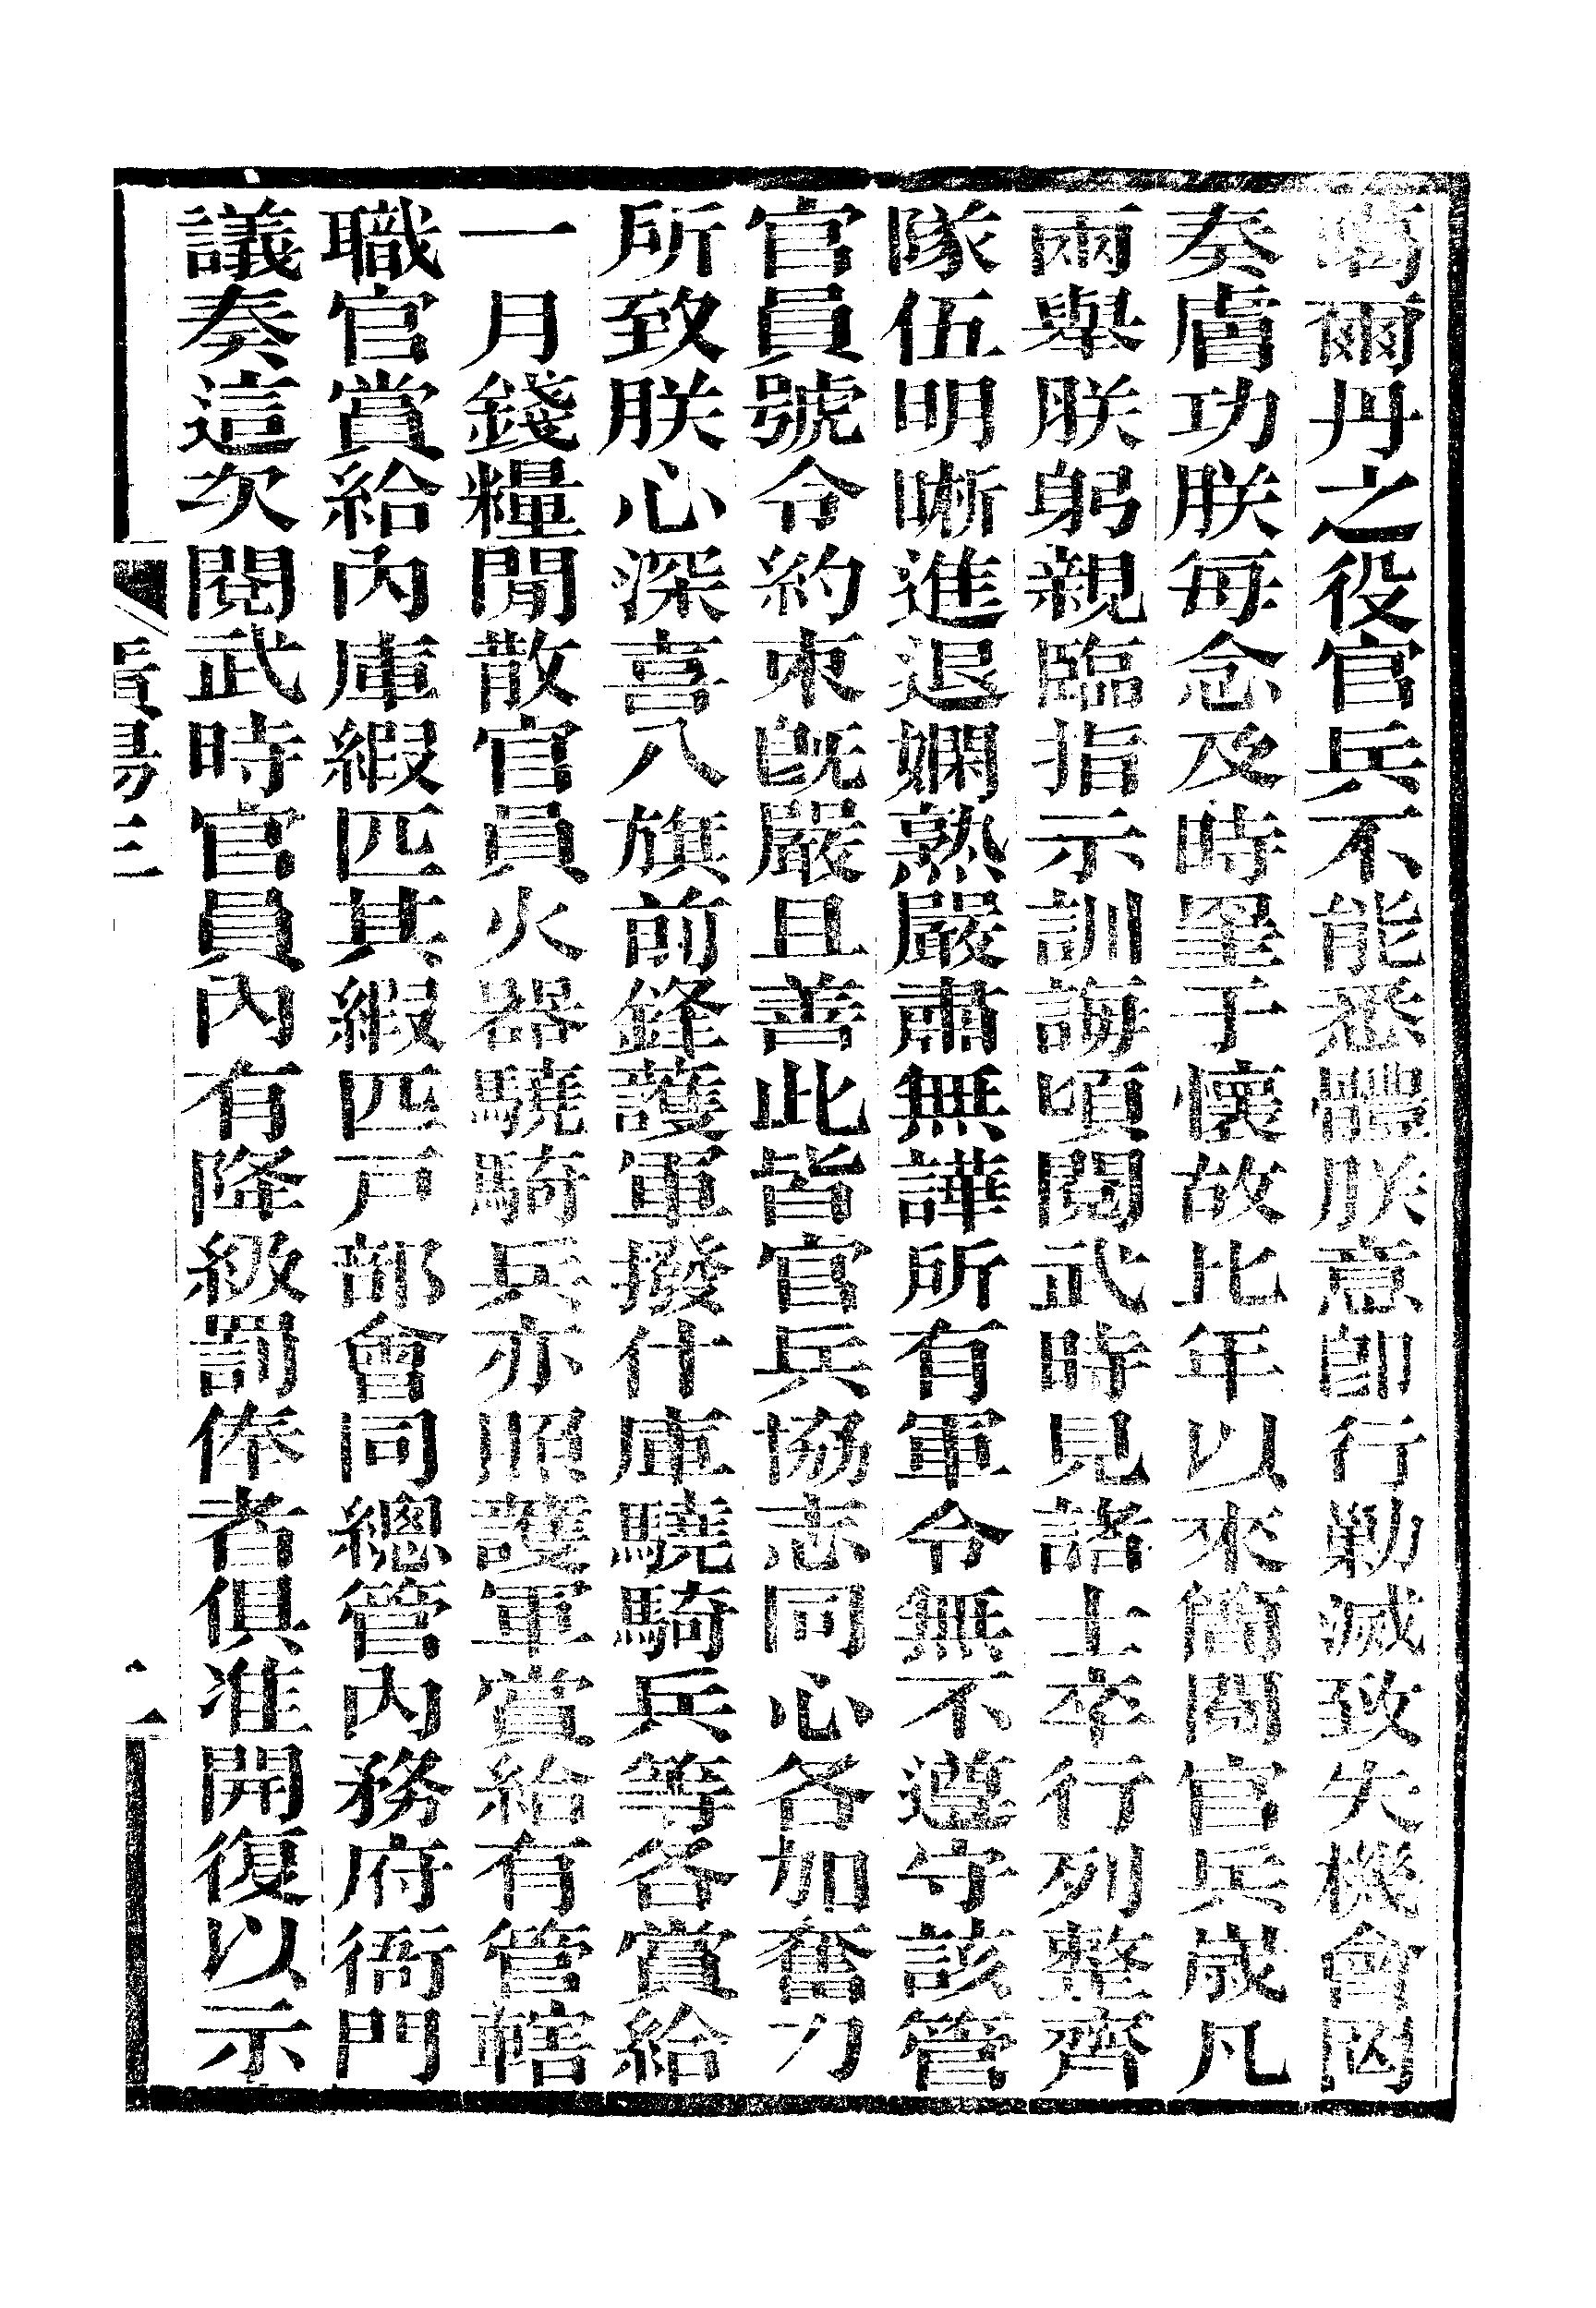 噶爾丹之役官兵不能悉體朕意卽行勦滅致失機會罔
奏膚功朕每念及時厪于懷故比年以來簡閱官兵歲凡
兩舉朕躬親臨指示訓誨頃閱武時見諸士卒行列整齊
隊伍明晰進退嫻熟嚴肅無譁所有軍令無不遵守該管
官員號令約束旣嚴且善此皆官兵協志同心各加奮力
所致朕心深喜八旗前鋒護軍撥什庫驍騎兵等各賞給
一月錢糧閒散官員火器驍騎兵亦照護軍賞給有管轄
職官賞給內庫緞匹其緞匹戸部會同總管內務府衙門
議奏這次閱武時官員內有降級罰俸者俱准開復以示
賞賜三